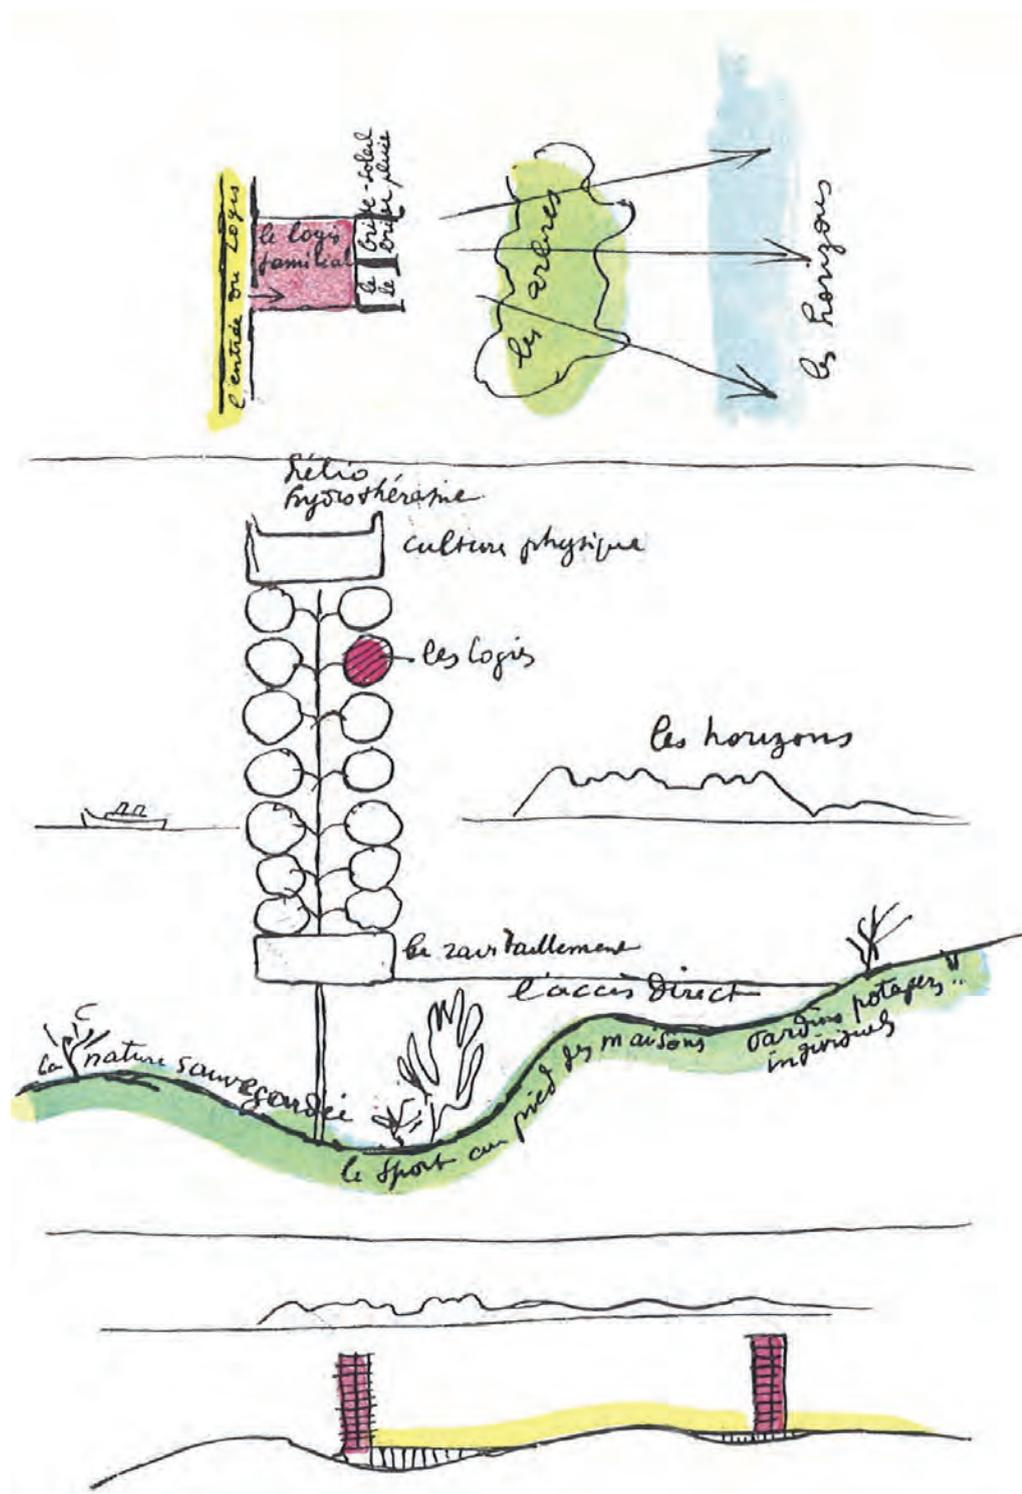 l'entrée du logis
le logis
familial
le brise-soleil
le
les arbres
les horizons
hélio
hydrothérapie
culture physique
les logis
les horizons
le ravitaillement
l'accès direct
la nature sauvegardée
le sport au pied des maisons
jardins potagers
individuels